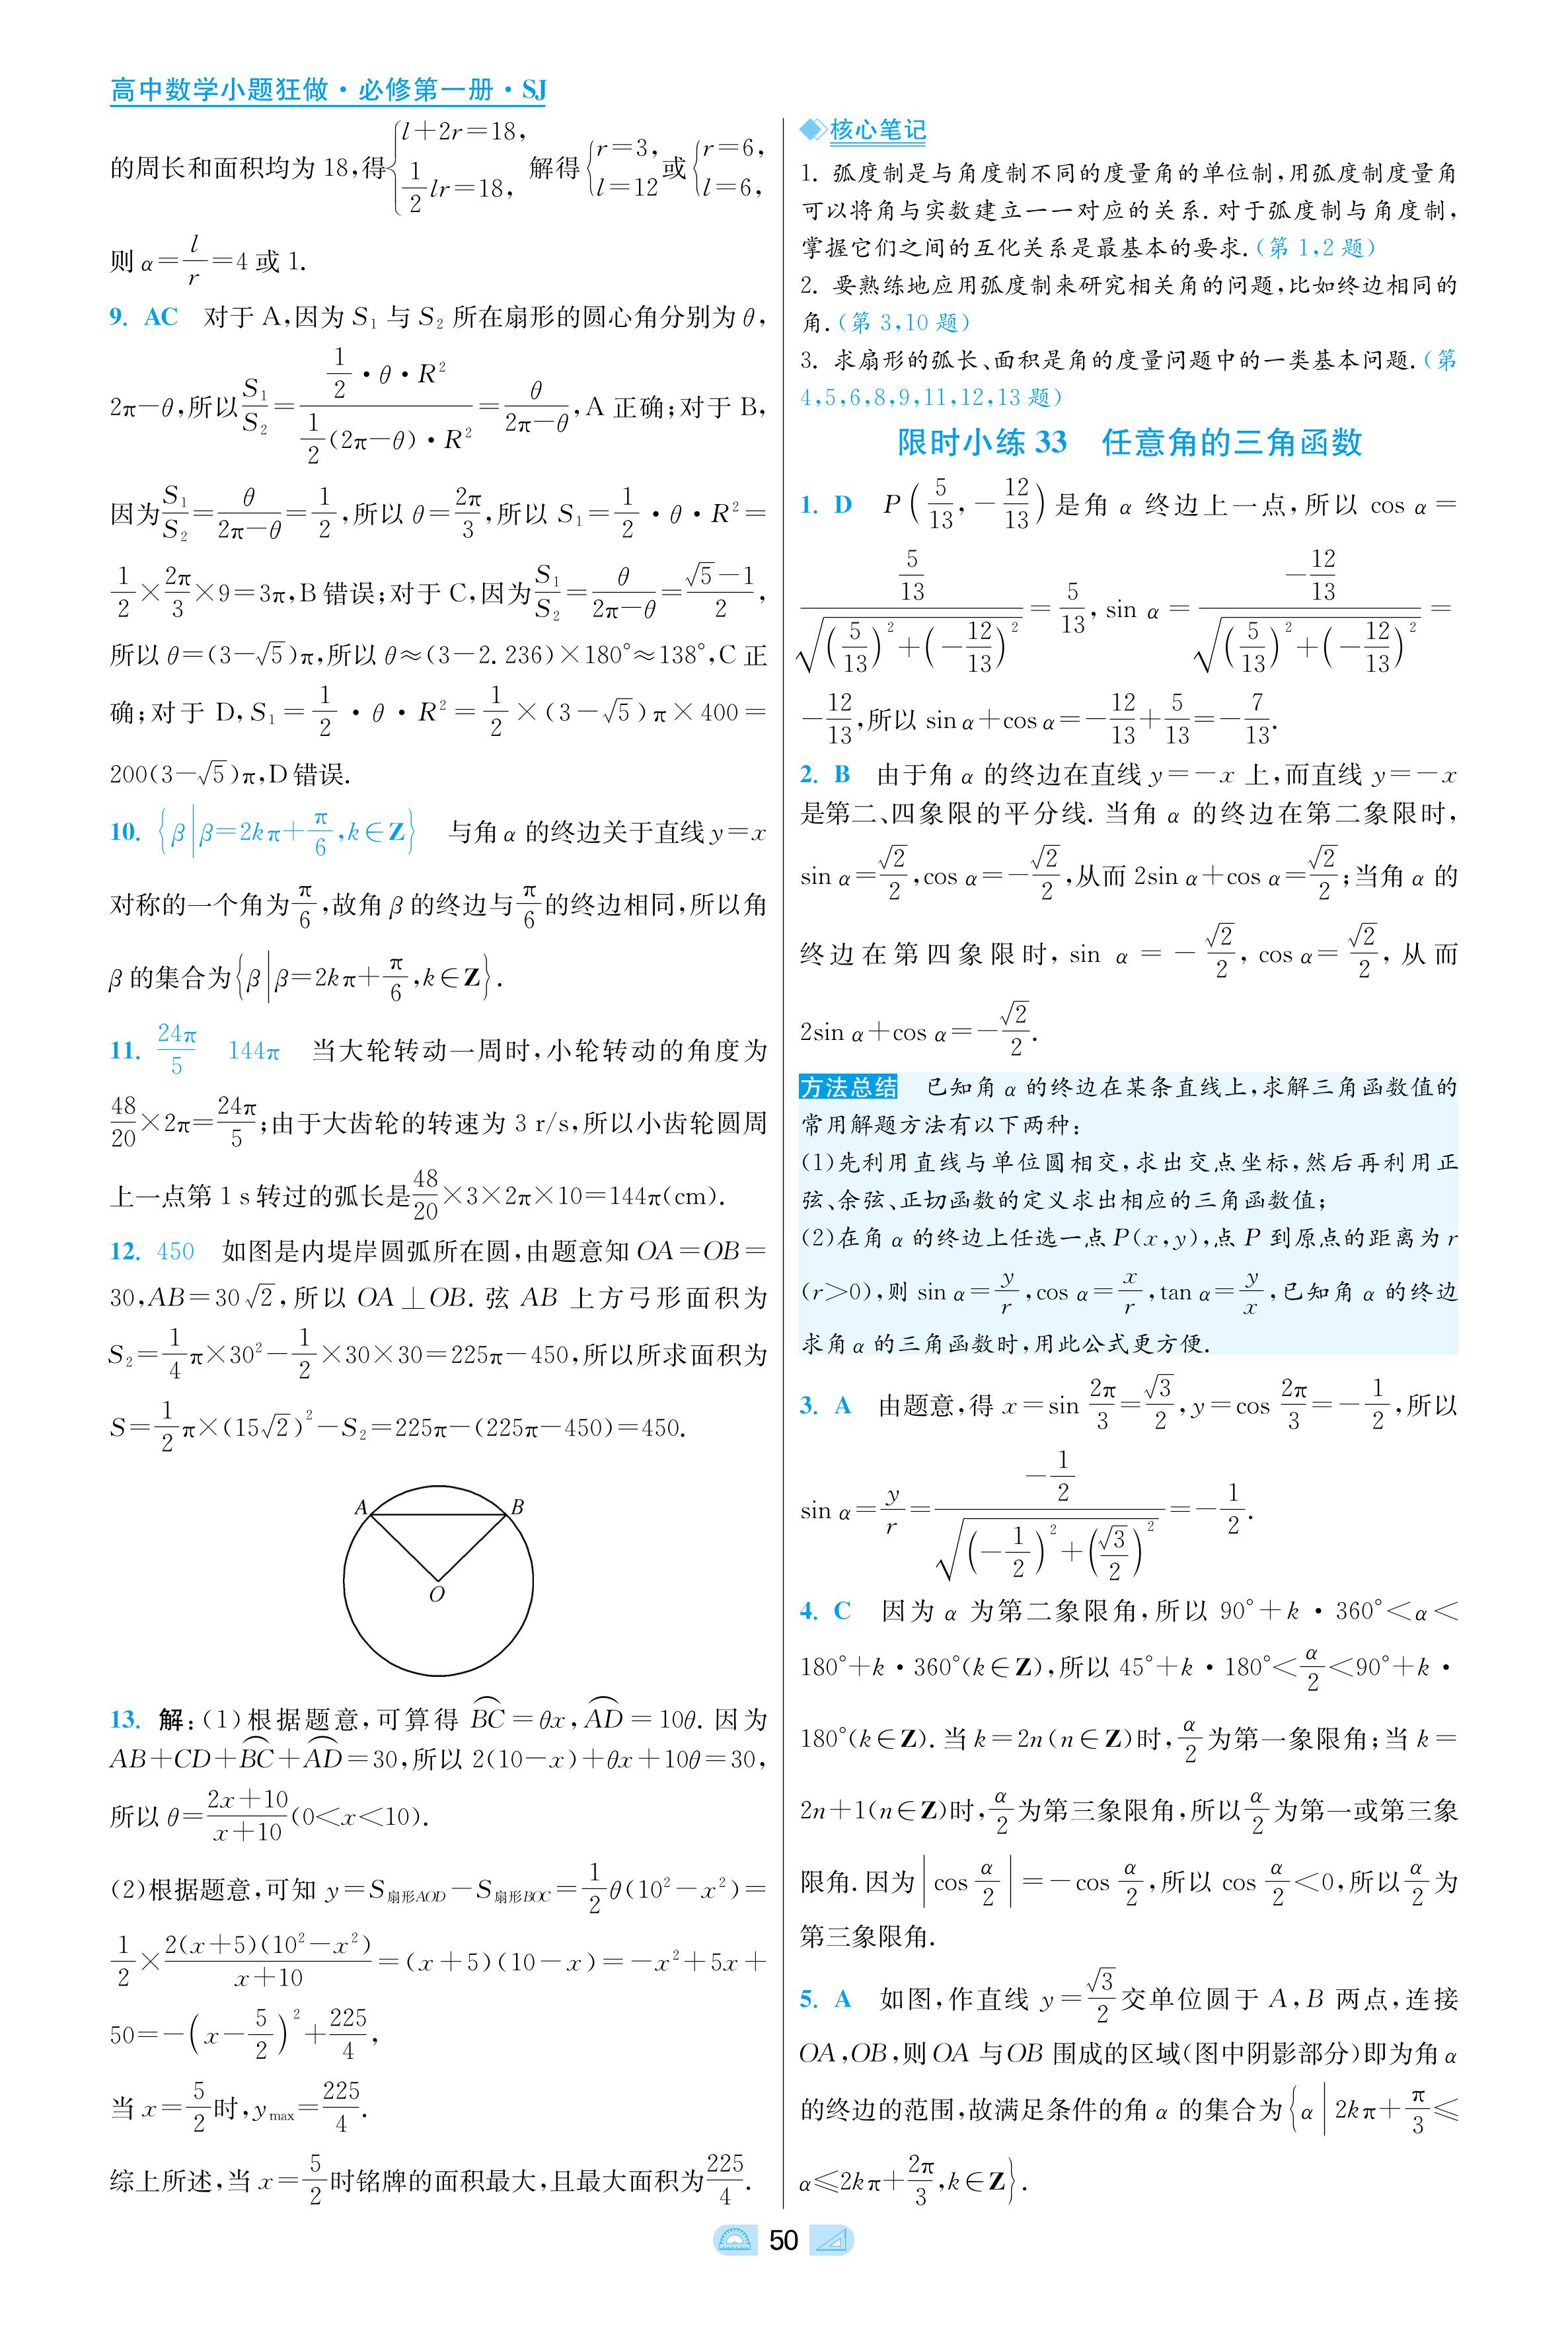 高中数学小题狂做·必修第一册·SJ
的周长和面积均为 18,得{l+2r=18, 1/2 lr=18, 解得{r=3, l=12 或{r=6, l=6,
则 α=l/r=4 或 1.
9. AC 对于 A,因为 S₁ 与 S₂ 所在扇形的圆心角分别为 θ,
2π−θ,所以 S₁/S₂=(1/2·θ·R²)/(1/2(2π−θ)·R²)=θ/(2π−θ),A 正确;对于 B,
因为 S₁/S₂=θ/(2π−θ)=1/2,所以 θ=2π/3,所以 S₁=1/2·θ·R²=
1/2×2π/3×9=3π,B 错误;对于 C,因为 S₁/S₂=θ/(2π−θ)=(√5−1)/2,
所以 θ=(3−√5)π,所以 θ≈(3−2.236)×180°≈138°,C 正
确;对于 D,S₁=1/2·θ·R²=1/2×(3−√5)π×400=
200(3−√5)π,D 错误.
10. {β|β=2kπ+π/6,k∈Z} 与角 α 的终边关于直线 y=x
对称的一个角为 π/6,故角 β 的终边与 π/6 的终边相同,所以角
β 的集合为{β|β=2kπ+π/6,k∈Z}.
11. 24π/5 144π 当大轮转动一周时,小轮转动的角度为
48/20×2π=24π/5;由于大齿轮的转速为 3 r/s,所以小齿轮圆周
上一点第 1 s 转过的弧长是 48/20×3×2π×10=144π(cm).
12. 450 如图是内堤岸圆弧所在圆,由题意知 OA=OB=
30,AB=30√2,所以 OA⊥OB. 弦 AB 上方弓形面积为
S₂=1/4π×30²−1/2×30×30=225π−450,所以所求面积为
S=1/2π×(15√2)²−S₂=225π−(225π−450)=450.
A B
O
13. 解:(1)根据题意,可算得 BC⌒=θx,AD⌒=10θ. 因为
AB+CD+BC⌒+AD⌒=30,所以 2(10−x)+θx+10θ=30,
所以 θ=(2x+10)/(x+10)(0<x<10).
(2)根据题意,可知 y=S扇形AOD−S扇形BOC=1/2θ(10²−x²)=
1/2×2(x+5)(10²−x²)/(x+10)=(x+5)(10−x)=−x²+5x+
50=−(x−5/2)²+225/4,
当 x=5/2 时,y_max=225/4.
综上所述,当 x=5/2 时铭牌的面积最大,且最大面积为 225/4.
核心笔记
1. 弧度制是与角度制不同的度量角的单位制,用弧度制度量角
可以将角与实数建立一一对应的关系. 对于弧度制与角度制,
掌握它们之间的互化关系是最基本的要求.(第 1,2 题)
2. 要熟练地应用弧度制来研究相关角的问题,比如终边相同的
角.(第 3,10 题)
3. 求扇形的弧长、面积是角的度量问题中的一类基本问题.(第
4,5,6,8,9,11,12,13 题)
限时小练 33 任意角的三角函数
1. D P(5/13,−12/13)是角 α 终边上一点,所以 cos α=
(5/13)/√((5/13)²+(−12/13)²)=5/13, sin α=(−12/13)/√((5/13)²+(−12/13)²)=
−12/13,所以 sin α+cos α=−12/13+5/13=−7/13.
2. B 由于角 α 的终边在直线 y=−x 上,而直线 y=−x
是第二、四象限的平分线. 当角 α 的终边在第二象限时,
sin α=√2/2,cos α=−√2/2,从而 2sin α+cos α=√2/2;当角 α 的
终边在第四象限时, sin α=−√2/2, cos α=√2/2, 从而
2sin α+cos α=−√2/2.
方法总结 已知角 α 的终边在某条直线上,求解三角函数值的
常用解题方法有以下两种:
(1)先利用直线与单位圆相交,求出交点坐标,然后再利用正
弦、余弦、正切函数的定义求出相应的三角函数值;
(2)在角 α 的终边上任选一点 P(x,y),点 P 到原点的距离为 r
(r>0),则 sin α=y/r,cos α=x/r,tan α=y/x,已知角 α 的终边
求角 α 的三角函数时,用此公式更方便.
3. A 由题意,得 x=sin 2π/3=√3/2,y=cos 2π/3=−1/2,所以
sin α=y/r=(−1/2)/√((−1/2)²+(√3/2)²)=−1/2.
4. C 因为 α 为第二象限角,所以 90°+k·360°<α<
180°+k·360°(k∈Z),所以 45°+k·180°<α/2<90°+k·
180°(k∈Z). 当 k=2n(n∈Z)时,α/2 为第一象限角;当 k=
2n+1(n∈Z)时,α/2 为第三象限角,所以 α/2 为第一或第三象
限角. 因为|cos α/2|=−cos α/2,所以 cos α/2<0,所以 α/2 为
第三象限角.
5. A 如图,作直线 y=√3/2 交单位圆于 A,B 两点,连接
OA,OB,则 OA 与 OB 围成的区域(图中阴影部分)即为角 α
的终边的范围,故满足条件的角 α 的集合为{α|2kπ+π/3≤
α≤2kπ+2π/3,k∈Z}.
50